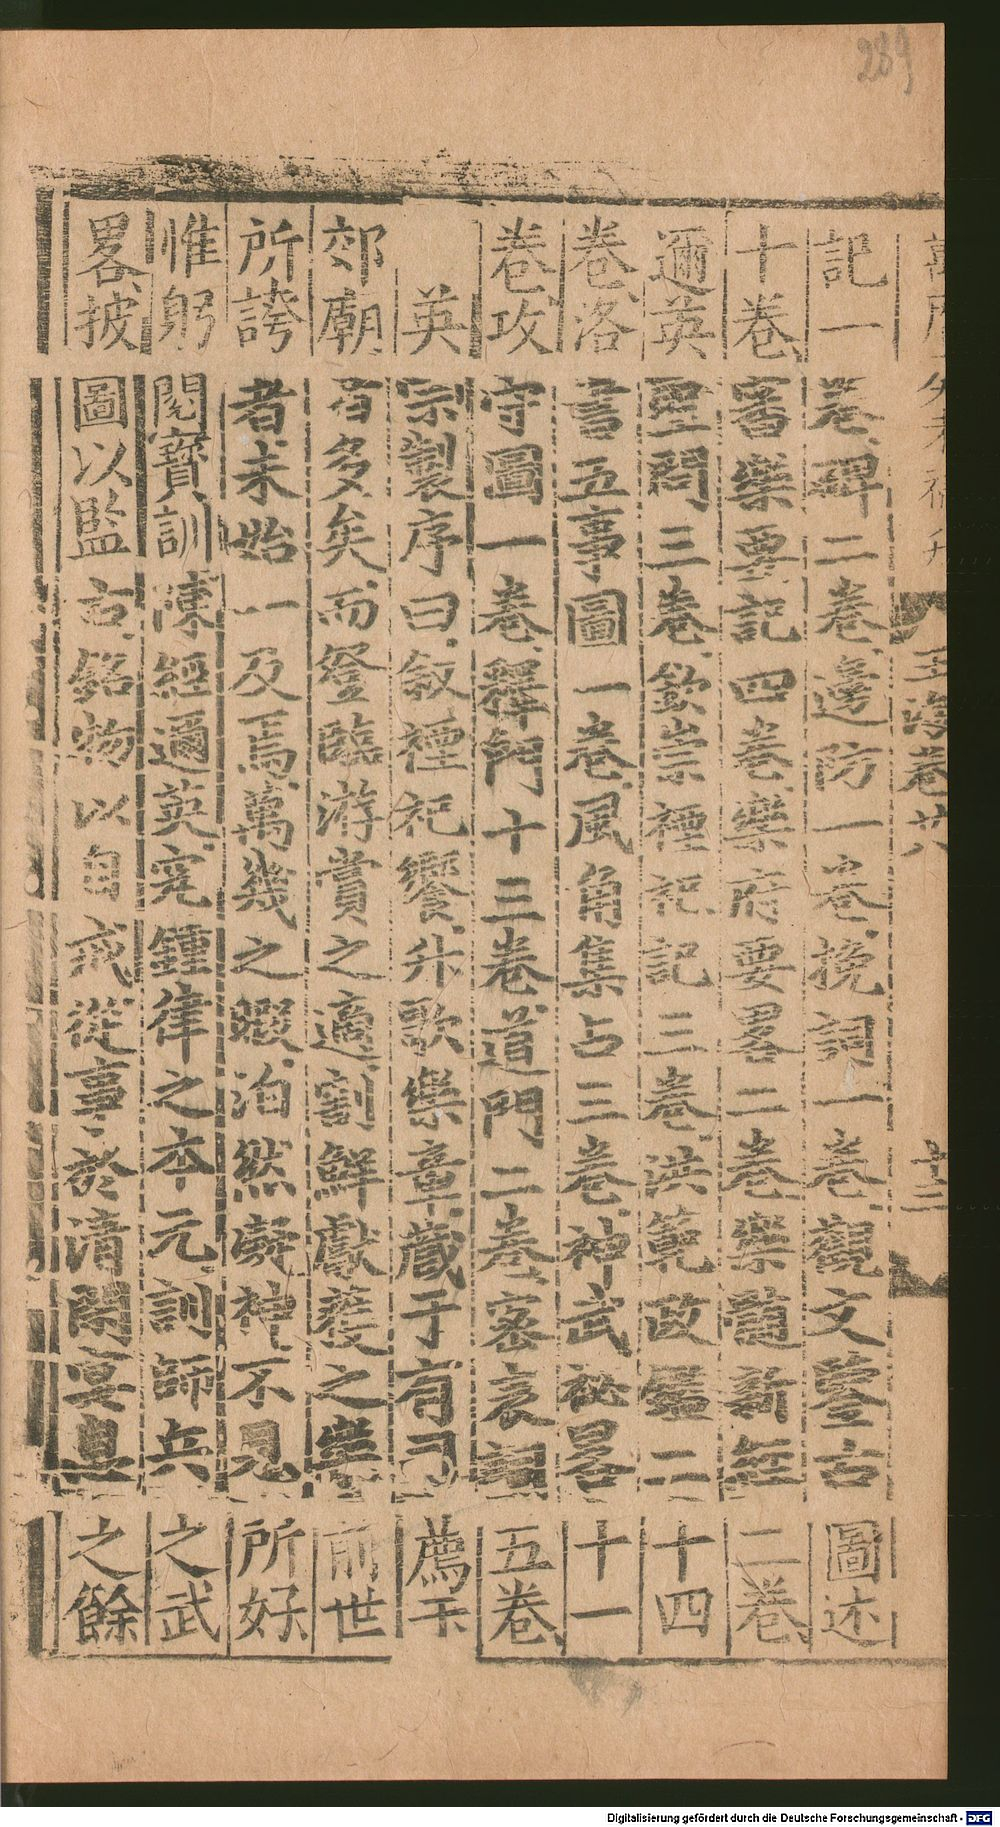 289
玉海卷廿八
十三
記一卷碑二卷邊防一卷挽詞一卷觀文鑒古圖述
十卷審樂要記四卷樂府要畧二卷樂髓新經一卷
邇英聖問三卷欽崇禋祀記三卷洪範政鑑二十四
卷洛書五事圖一卷風角集占三卷神武祕畧十一
卷攻守圖一卷釋門十三卷道門二卷密哀詞五卷
英宗製序曰敘禋祀饗升歌樂章藏于有司薦于
郊廟者多矣而登臨游賞之適割鮮獻獲之樂前世
所誇者未始一及焉萬幾之暇泊然凝神不見所好
惟躬閱寶訓陳經邇英究鍾律之本元訓師兵之武
畧披圖以監古銘物以自戒從事於清閒宴息之餘
Digitalisierung gefördert durch die Deutsche Forschungsgemeinschaft - DFG